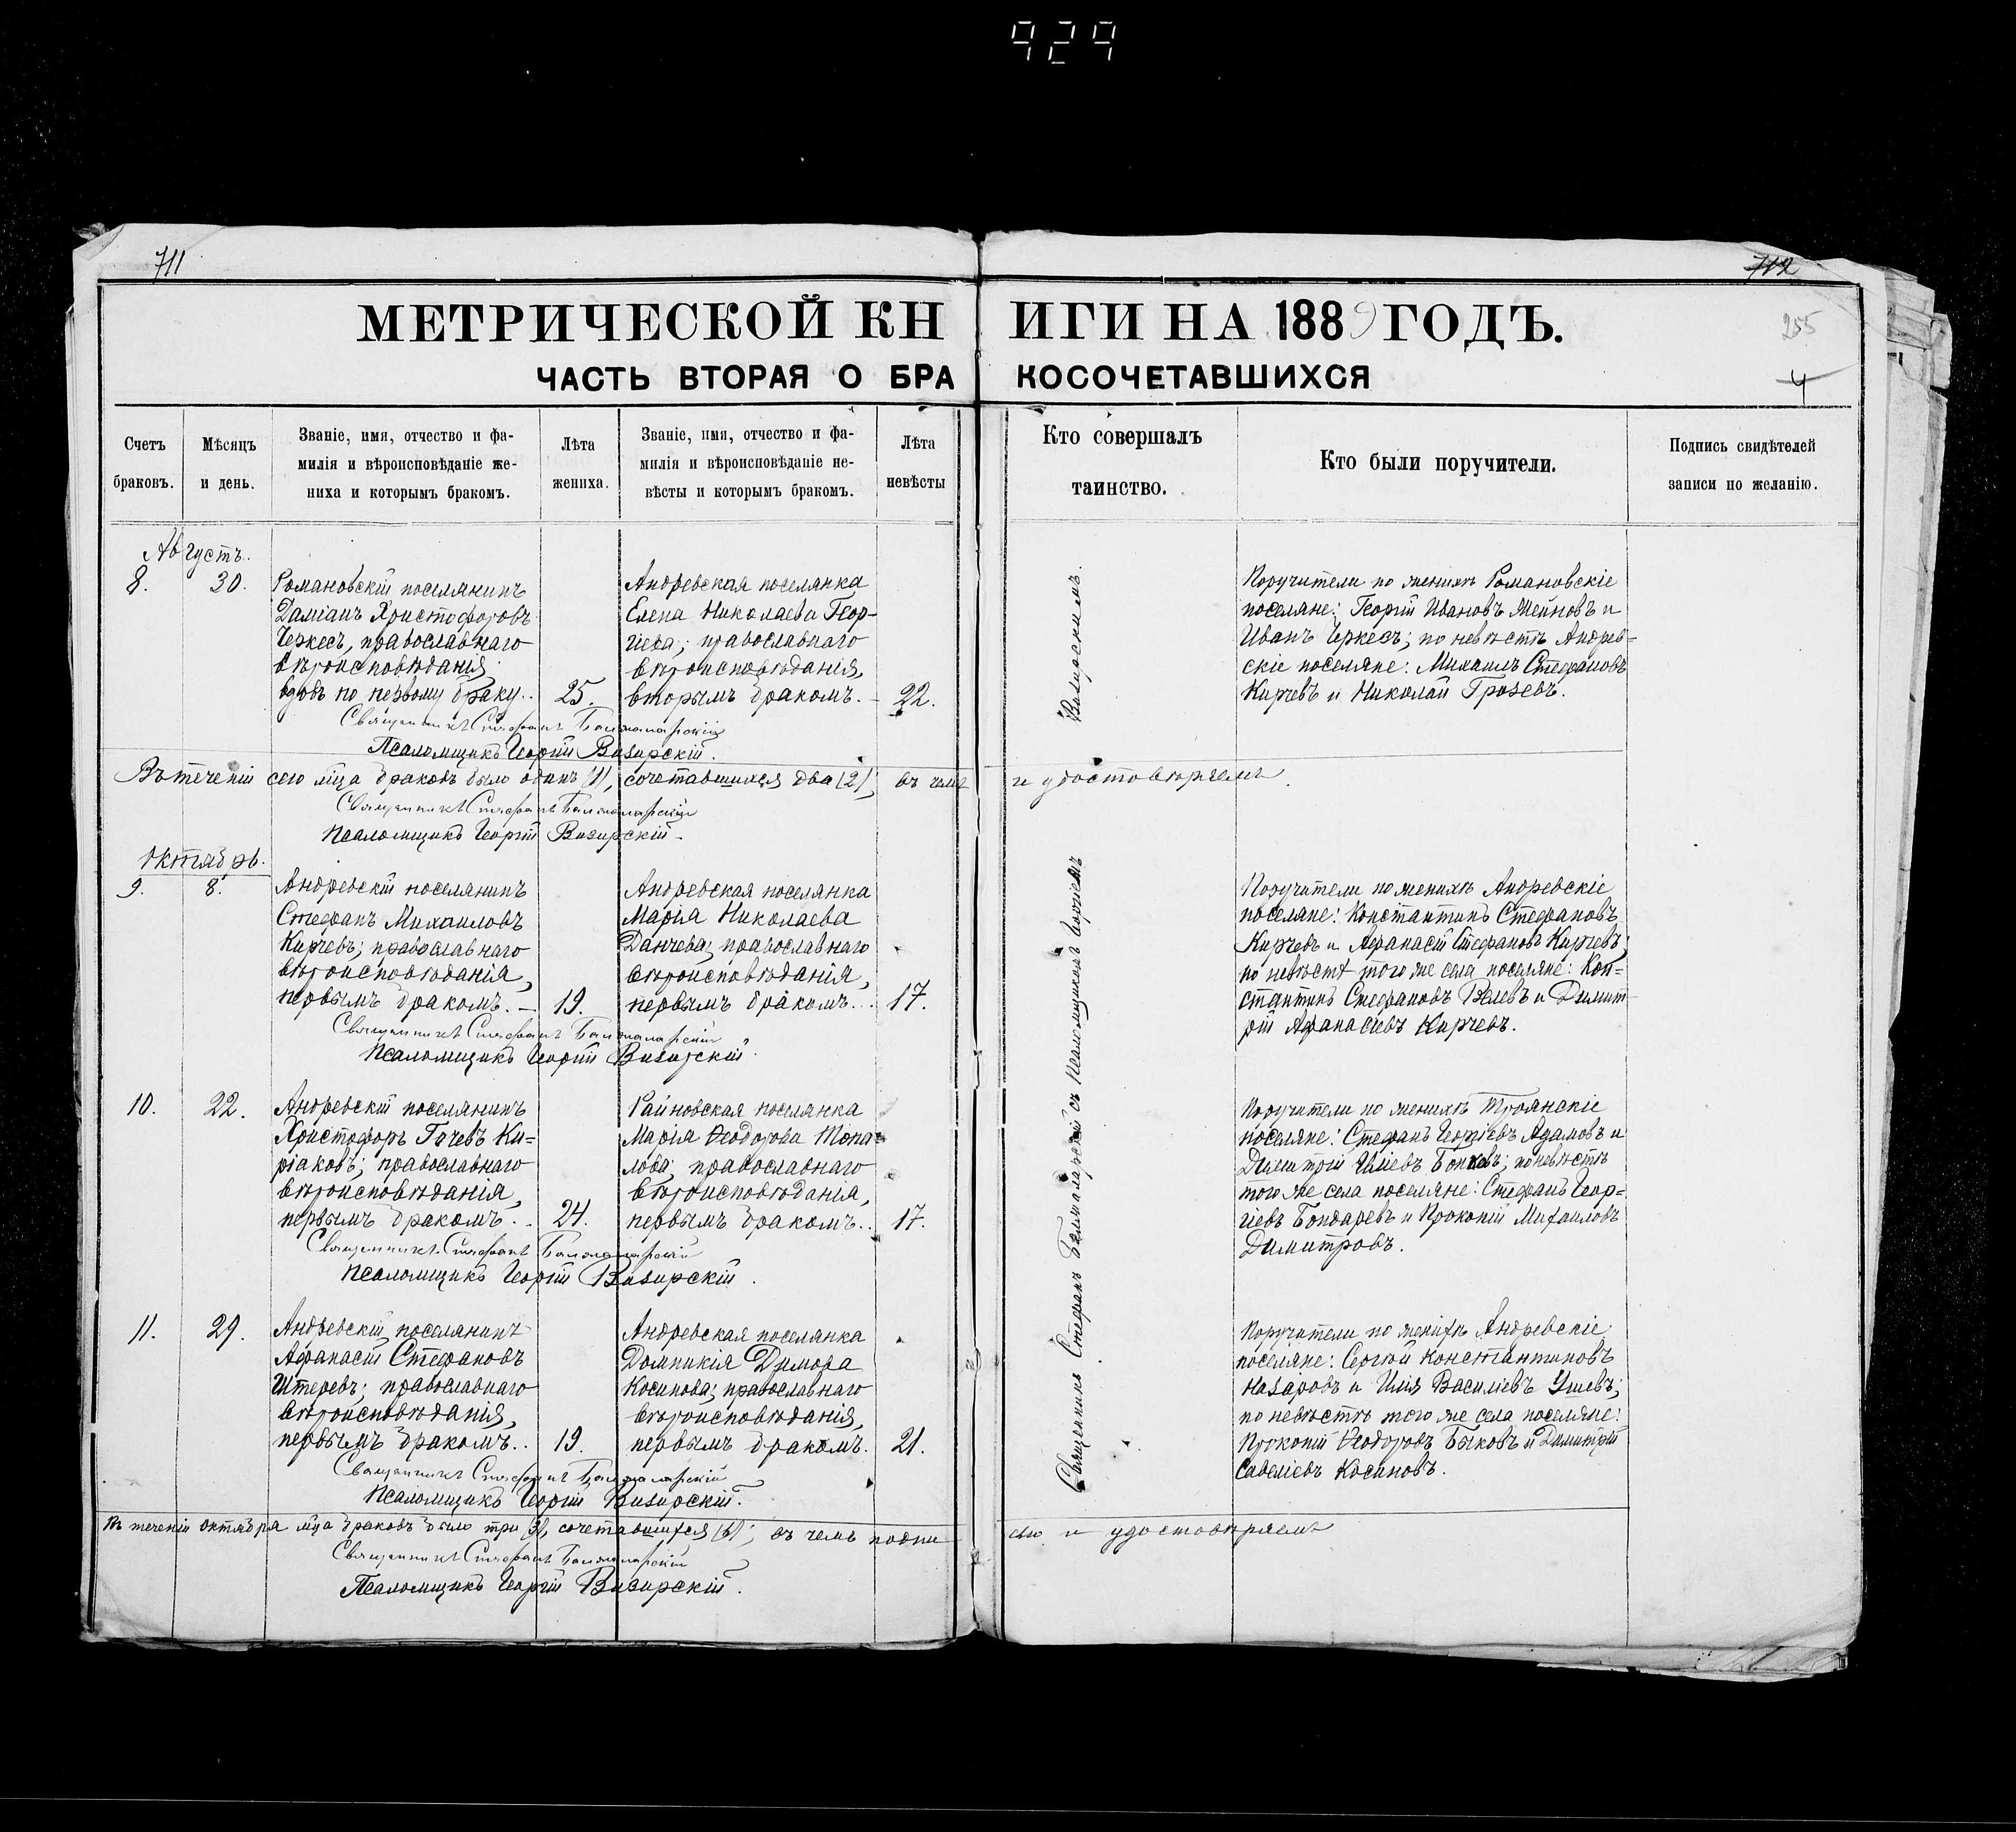 929
711
712
МЕТРИЧЕСКОЙ КНИГИ НА 1889 ГОДЪ.
255
ЧАСТЬ ВТОРАЯ О БРАКОСОЧЕТАВШИХСЯ
4
Счетъ браковъ.
Мѣсяцъ и день.
Званіе, имя, отчество и фа-
милія и вѣроисповѣданіе же-
ниха и которымъ бракомъ.
Лѣта жениха.
Званіе, имя, отчество и фа-
милія и вѣроисповѣданіе не-
вѣсты и которымъ бракомъ.
Лѣта невѣсты
Кто совершалъ
таинство.
Кто были поручители.
Подпись свидѣтелей
записи по желанію.
Августъ.
8.
30.
Романовскій поселянинъ
Даміанъ Христофоровъ
Черкесъ, православнаго
вѣроисповѣданія,
вдовъ по первому браку.
25.
Андревская поселянка
Елена Николаева Геор-
гіева; православнаго
вѣроисповѣданія,
вторымъ бракомъ.
22.
Поручители по женихѣ Романовскіе
поселяне: Георгій Ивановъ Мейновъ и
Иванъ Черкесъ; по невѣстѣ Андрев-
скіе поселяне: Михаилъ Стефановъ
Кирчевъ и Николай Грозевъ.
Священникъ Стефанъ
Псаломщикъ Георгій Визирскій.
Въ теченіи сего мѣца браковъ было одинъ (1), сочетавшихся два (2), въ чемъ и удостовѣряемъ.
Священникъ Стефанъ
Псаломщикъ Георгій Визирскій.
Октябрь.
9.
8.
Андревскій поселянинъ
Стефанъ Михаиловъ
Кирчевъ; православнаго
вѣроисповѣданія,
первымъ бракомъ.
19.
Андревская поселянка
Марія Николаева
Данчева; православнаго
вѣроисповѣданія,
первымъ бракомъ.
17.
Поручители по женихѣ Андревскіе
поселяне: Константинъ Стефановъ
Кирчевъ и Афанасій Стефановъ Кирчевъ;
по невѣстѣ того же села поселяне: Кон-
стантинъ Стефановъ Велевъ и Димит-
рій Афанасіевъ Кирчевъ.
Священникъ Стефанъ
Псаломщикъ Георгій Визирскій.
10.
22.
Андревскій поселянинъ
Христофоръ Гочевъ Ки-
ріаковъ; православнаго
вѣроисповѣданія,
первымъ бракомъ.
24.
Райновская поселянка
Марія Ѳеодорова Топа-
лова; православнаго
вѣроисповѣданія,
первымъ бракомъ.
17.
Поручители по женихѣ Троянскіе
поселяне: Стефанъ Георгіевъ Адамовъ и
Димитрій Иліевъ; по невѣстѣ
того же села поселяне: Стефанъ Геор-
гіевъ Бондаревъ и Прокопій Михаиловъ
Димитровъ.
Священникъ Стефанъ
Псаломщикъ Георгій Визирскій.
11.
29.
Андревскій поселянинъ
Афанасій Стефановъ
Штеревъ; православнаго
вѣроисповѣданія,
первымъ бракомъ.
19.
Андревская поселянка
Домникія Димова
Косинова; православнаго
вѣроисповѣданія,
первымъ бракомъ.
21.
Поручители по женихѣ Андревскіе
поселяне: Сергѣй Константиновъ
Назаровъ и Илія Василіевъ;
по невѣстѣ того же села поселяне:
Прокопій Ѳеодоровъ Быковъ и Димитрій
Савеліевъ Косиновъ.
Священникъ Стефанъ
Псаломщикъ Георгій Визирскій.
Въ теченіи Октября мѣца браковъ было три (3), сочетавшихся (6); въ чемъ и удостовѣряемъ
Священникъ Стефанъ
Псаломщикъ Георгій Визирскій.
Священникъ Стефанъ съ псаломщикомъ Георгіемъ Визирскимъ.